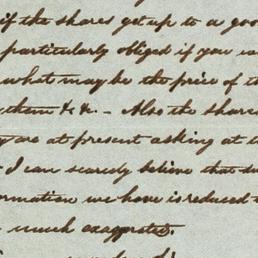 if the shares get up to a goo
particularly obliged if you w
what may be the price of t
them &c &c. - Also the share
y are at present asking at t
I can scarcely believe that
ormation we have is reduced
much exaggerated.